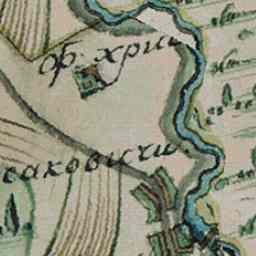 оф. хрис
саковичи